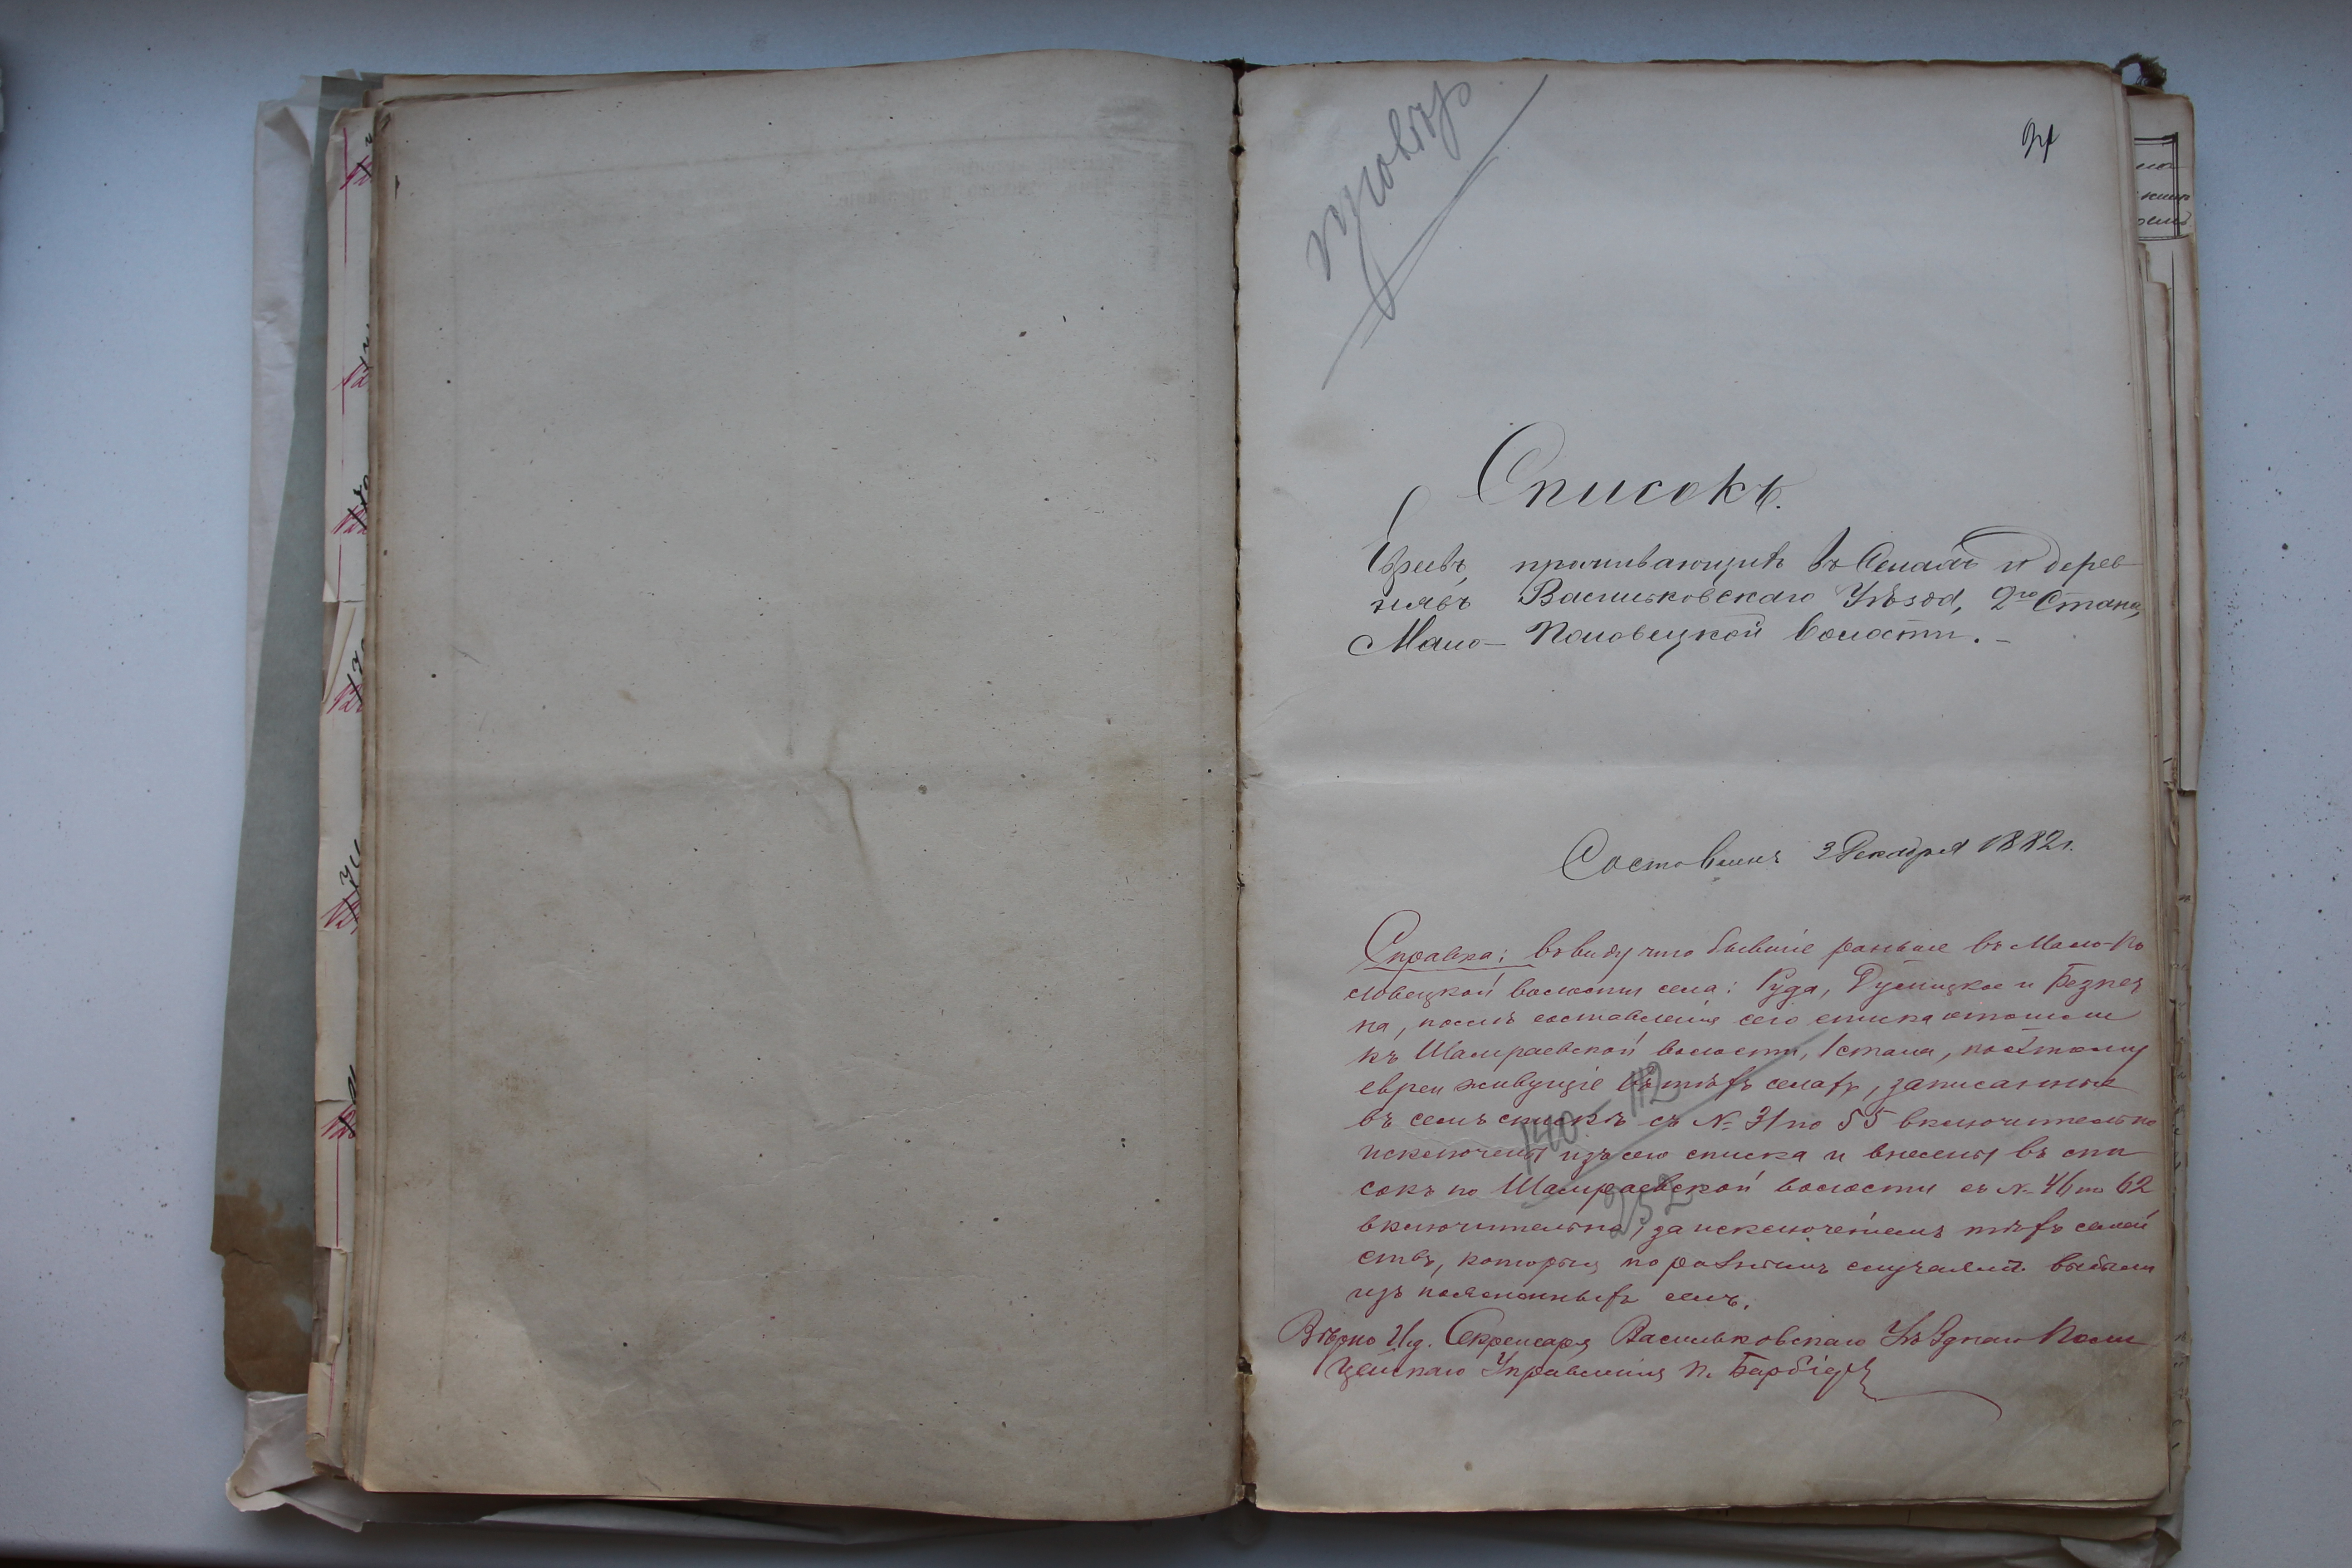 провѣр
Списокъ.
Евреевъ, проживающихъ въ Селахъ и дерев-
няхъ Васильковскаго Уѣзда, 2го Стана,
Мало-Половецкой волости.-
Составленъ 3 Декабря 1882 г.
Справка: въ виду что бывшіе раньше въ Мало-По
ловецкой волости села: Руда, Дулицкое и Безпеч
на, послѣ составленія сего списка отошли
къ Шамраевской волости, 1 стана, поэтому
евреи живущіе въ тѣхъ селахъ, записанные
въ семъ спискѣ съ № 31 по 55 включительно
исключены изъ сего списка и внесены въ спи
сокъ по Шамраевской волости съ № 46 по 62
включительно, за исключеніемъ тѣхъ семей
ствъ, которыя по разнымъ случаямъ выбыли
изъ поясненныхъ селъ.
140 112
252
Вѣрно И.д. Секретаря Васильковскаго Уѣзднаго Поли
цейскаго Управленія П.